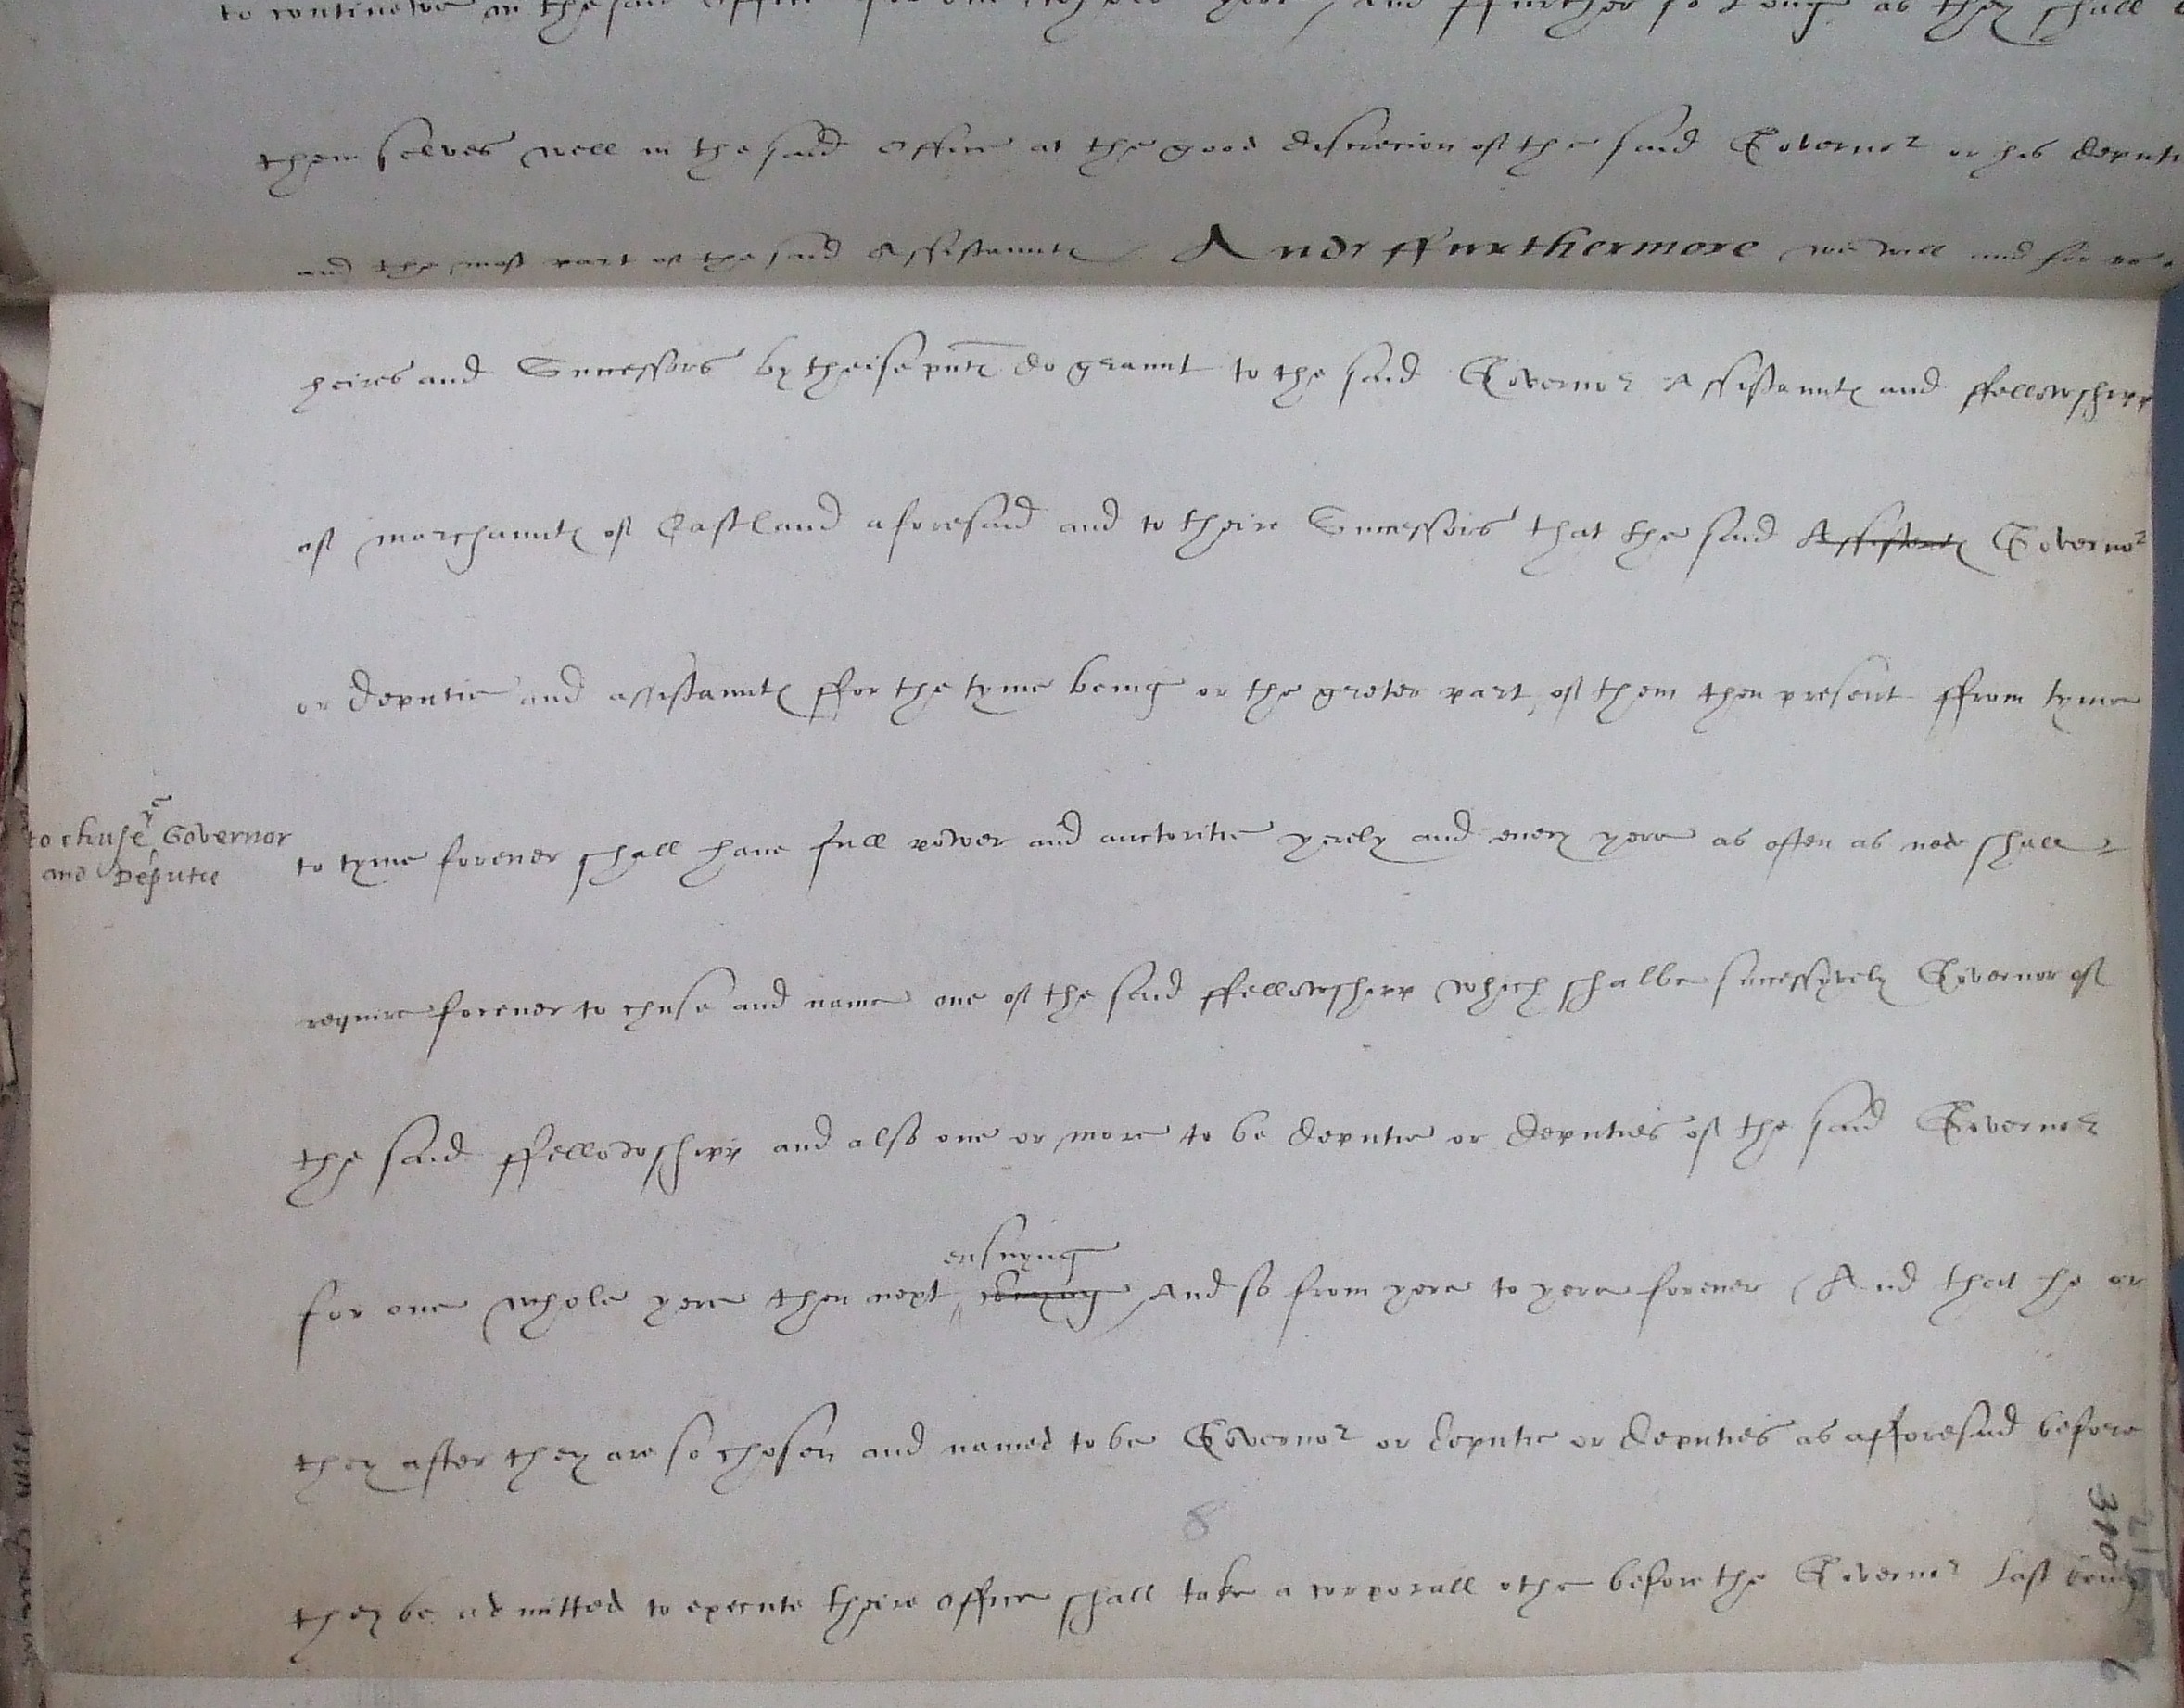 to continewe in the said office for one whole yere / And ffurther so Long as they shall
them selves well in the said office at the good discrecion of the said Governor or his deputi
and the most part of the said Assistauntes And ffurthermore we will and for us
heires and Successors by theise pntes do graunt to the said Governor Assistauntes and ffellowshipp
of marchauntes of Eastland aforesaid and to theire Successors that the said Assistents Governor
or deputie and assistauntes ffor the tyme being or the greter part of them then present ffrom tyme
to chuse ye Governor
and Deputie
to tyme forever shall have full power and auctoritie yerely and every yere as often as nede shall
require forever to chuse and name one of the said ffellowshipp which shalbe successyvely Governor of
the said ffellowshipp and also one or more to be deputie or deputies of the said Governor
ensuyng
for one whole yere then next comyng And so from yere to yere forever / And that he or
they after they are so chosen and named to be Governor or deputie or deputies as afforesaid before
8
they be admitted to execute theire office shall take a corporall othe before the Governor Last being